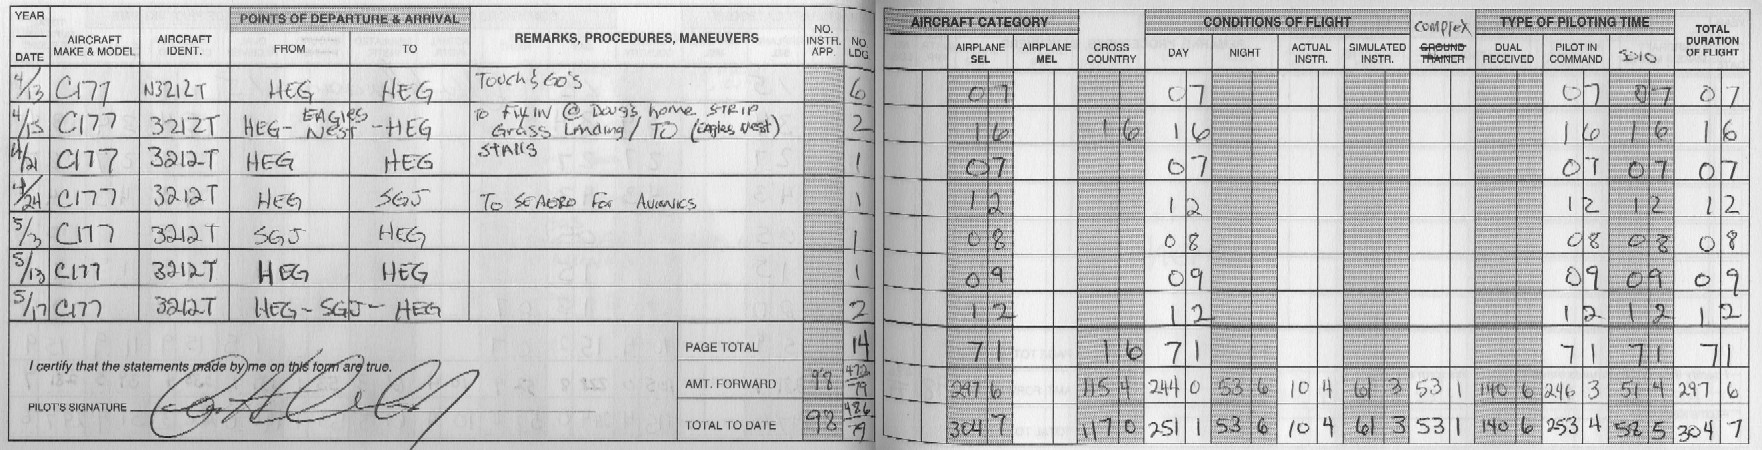 YEAR
DATE
AIRCRAFT MAKE & MODEL
AIRCRAFT IDENT.
POINTS OF DEPARTURE & ARRIVAL
FROM TO
REMARKS, PROCEDURES, MANEUVERS
NO. INSTR. APP.
NO. LDG.
AIRCRAFT CATEGORY
AIRPLANE SEL
AIRPLANE MEL
CROSS COUNTRY
CONDITIONS OF FLIGHT
DAY NIGHT ACTUAL INSTR. SIMULATED INSTR.
complex
GROUND TRAINER
TYPE OF PILOTING TIME
DUAL RECEIVED PILOT IN COMMAND solo
TOTAL DURATION OF FLIGHT
4/13 C177 N3212T HEG HEG Touch & Go's 6 0 7 0 7 0 7 0 7 0 7
4/15 C177 3212T HEG- EAGles Nest -HEG To Fly IN @ Doug's home STRIP 2 1 6 1 6 1 6 1 6 1 6 1 6
Grass Landing / TO (Eagles Nest)
4/21 C177 3212T HEG HEG STAlls 1 0 7 0 7 0 7 0 7 0 7
4/24 C177 3212T HEG SGJ To SEAERO For Avionics 1 1 2 1 2 1 2 1 2 1 2
5/3 C177 3212T SGJ HEG 1 0 8 0 8 0 8 0 8 0 8
5/13 C177 3212T HEG HEG 1 0 9 0 9 0 9 0 9 0 9
5/17 C177 3212T HEG - SGJ - HEG 2 1 2 1 2 1 2 1 2 1 2
PAGE TOTAL 14 7 1 1 6 7 1 7 1 7 1 7 1
I certify that the statements made by me on this form are true.
AMT. FORWARD 98 472/79 297 6 115 4 244 0 53 6 10 4 61 3 53 1 140 6 246 3 51 4 297 6
PILOT'S SIGNATURE
TOTAL TO DATE 98 486/79 304 7 117 0 251 1 53 6 10 4 61 3 53 1 140 6 253 4 58 5 304 7